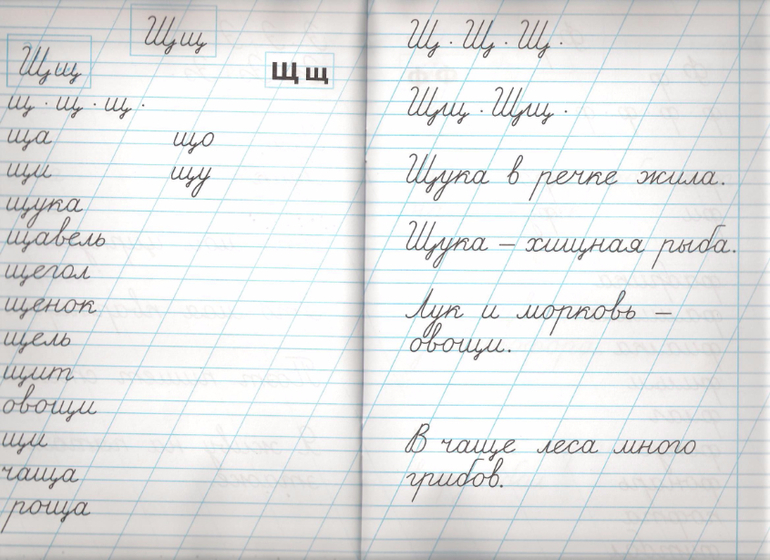 Щщ
Щщ
Щ щ
щ · щ · щ ·
ща що
щи щу
щука
щавель
щегол
щенок
щель
щит
овощи
щи
чаща
роща
Щ · Щ · Щ ·
Щщ · Щщ ·
Щука в речке жила.
Щука – хищная рыба.
Лук и морковь –
овощи.
В чаще леса много
грибов.